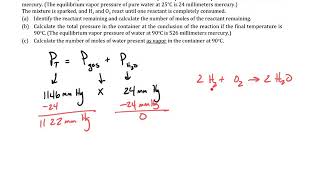 mercury. (The equilibrium vapor pressure of pure water at 25°C is 24 millimeters mercury.)
The mixture is sparked, and H₂ and O₂ react until one reactant is completely consumed.
(a) Identify the reactant remaining and calculate the number of moles of the reactant remaining.
(b) Calculate the total pressure in the container at the conclusion of the reaction if the final temperature is 90°C. (The equilibrium vapor pressure of water at 90°C is 526 millimeters mercury.)
(c) Calculate the number of moles of water present as vapor in the container at 90°C.
P_T = P_gas + P_H₂O
1146 mm Hg X 24 mm Hg
-24 -24 mm Hg
1122 mm Hg 0
2 H₂ + O₂ → 2 H₂O